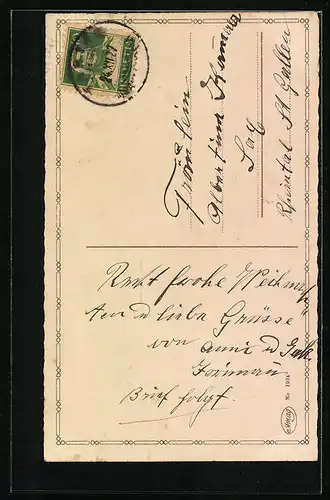 Fräulein
Albertina
Sax
Rheintal St. Gallen
Recht frohe Weihnach
ten u liebe Grüsse
von Anni u
Brief folgt.
Amag
No 1934